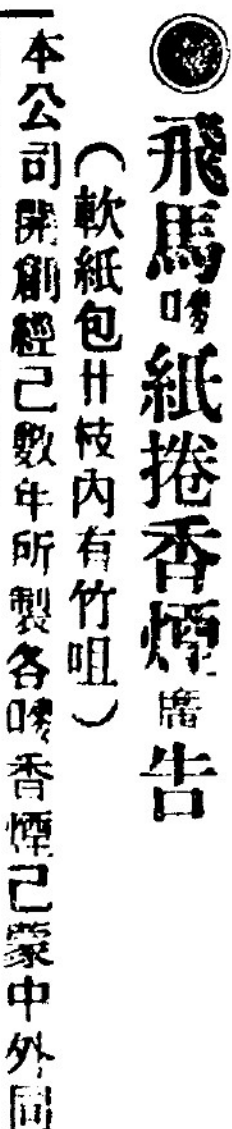 飛馬嘜紙捲香煙廣告
(軟紙包廿枝內有竹咀)
本公司開創經己數年所製各嘜香煙己蒙中外同